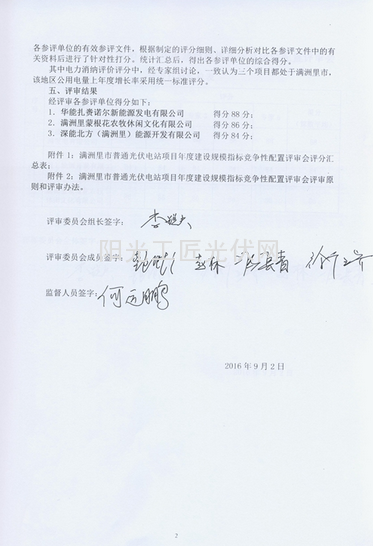 各参评单位的有效参评文件，根据制定的评分细则、详细分析对比各参评文件中的有
关资料后进行了针对性打分，统计汇总后，得出各参评单位的综合得分。
其中电力消纳评价评分中，经专家组讨论，一致认为三个项目都处于满洲里市，
该地区公用电量上年度增长率采用统一标准评分。
五、评审结果
经评审各参评单位得分如下：
1. 华能扎赉诺尔新能源发电有限公司 得分 88 分；
2. 满洲里蒙根花农牧休闲文化有限公司 得分 86 分；
3. 深能北方（满洲里）能源开发有限公司 得分 84 分；
附件 1：满洲里市普通光伏电站项目年度建设规模指标竞争性配置评审会评分汇
总表；
附件 2：满洲里市普通光伏电站项目年度建设规模指标竞争性配置评审会评审原
则和评审办法。
评审委员会组长签字：
阳光工匠光伏网
评审委员会成员签字：
监督人员签字：何远鹏
2016 年 9 月 2 日
7